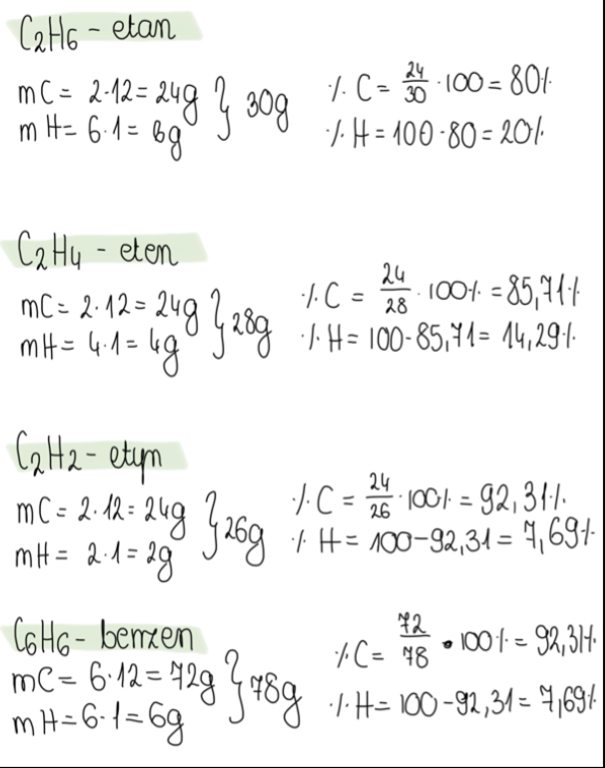 C2H6 - etan
mC = 2·12 = 24g } 30g
mH = 6·1 = 6g
% C = 24/30 · 100 = 80%
% H = 100 - 80 = 20%
C2H4 - eten
mC = 2·12 = 24g } 28g
mH = 4·1 = 4g
% C = 24/28 · 100% = 85,71%
% H = 100 - 85,71 = 14,29%
C2H2 - etyn
mC = 2·12 = 24g } 26g
mH = 2·1 = 2g
% C = 24/26 · 100% = 92,31%
% H = 100 - 92,31 = 7,69%
C6H6 - benzen
mC = 6·12 = 72g } 78g
mH = 6·1 = 6g
% C = 72/78 · 100% = 92,31%
% H = 100 - 92,31 = 7,69%